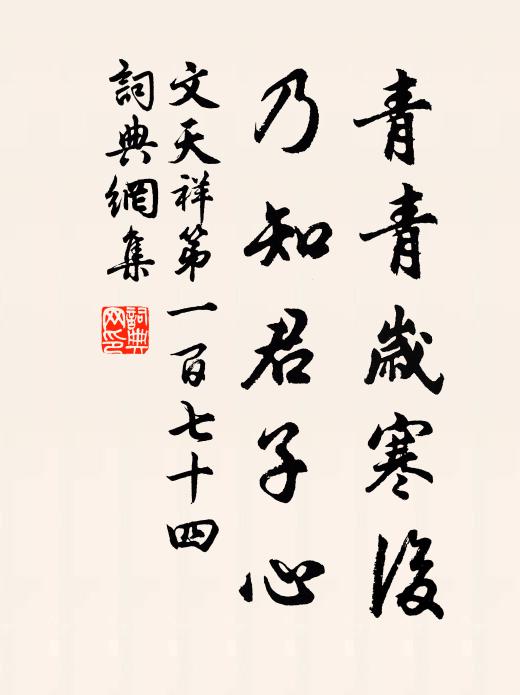 青青歲寒後
乃知君子心
文天祥第一百七十四
詞典網集
詞典网印